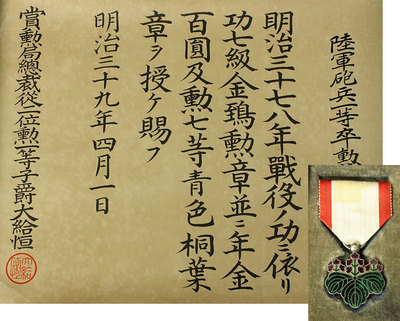 陸軍砲兵一等卒勲
明治三十七八年戰役ノ功ニ依リ
功七級金鵄勲章並ニ年金
百圓及勲七等靑色桐葉
章ヲ授ケ賜フ
明治三十九年四月一日
賞勲局總裁從二位勲一等子爵大給恒